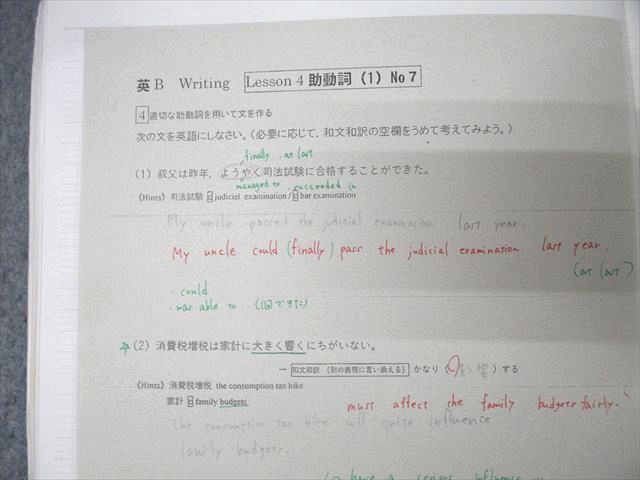 英B Writing Lesson 4 助動詞 (1) No 7
4 適切な助動詞を用いて文を作る
次の文を英語にしなさい。(必要に応じて, 和文和訳の空欄をうめて考えてみよう。)
finally , at last
(1) 叔父は昨年, ようやく司法試験に合格することができた。
managed to , succeeded in
《Hints》 司法試験 judicial examination / bar examination
My uncle passed the judicial examination last year.
My uncle could (finally) pass the judicial examination last year.
(at last)
・could
・was able to (1回できた)
☆(2) 消費税増税は家計に大きく響くにちがいない。
→ 和文和訳 [別の表現に言い換える] かなり (影響) する
《Hints》 消費税増税 the consumption tax hike
家計 family budgets
must affect the family budgets fairly.
The consumption tax hike will quite influence
family budgets.
have a serious influence